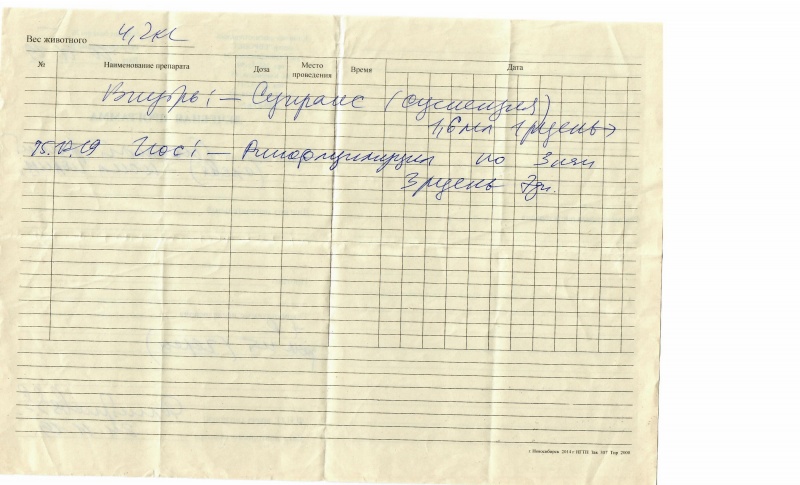 Вес животного 4,2кг
№ Наименование препарата Доза Место проведения Время Дата
Внутрь: – Супракс (суспензия)
1,6мл 1р/день →
15.12.19 Нос: – Ципрофлоксацин по 3 кап
3р/день 7дн.
г. Новосибирск 2014 г ИГТП Зак 597 Тир 2000